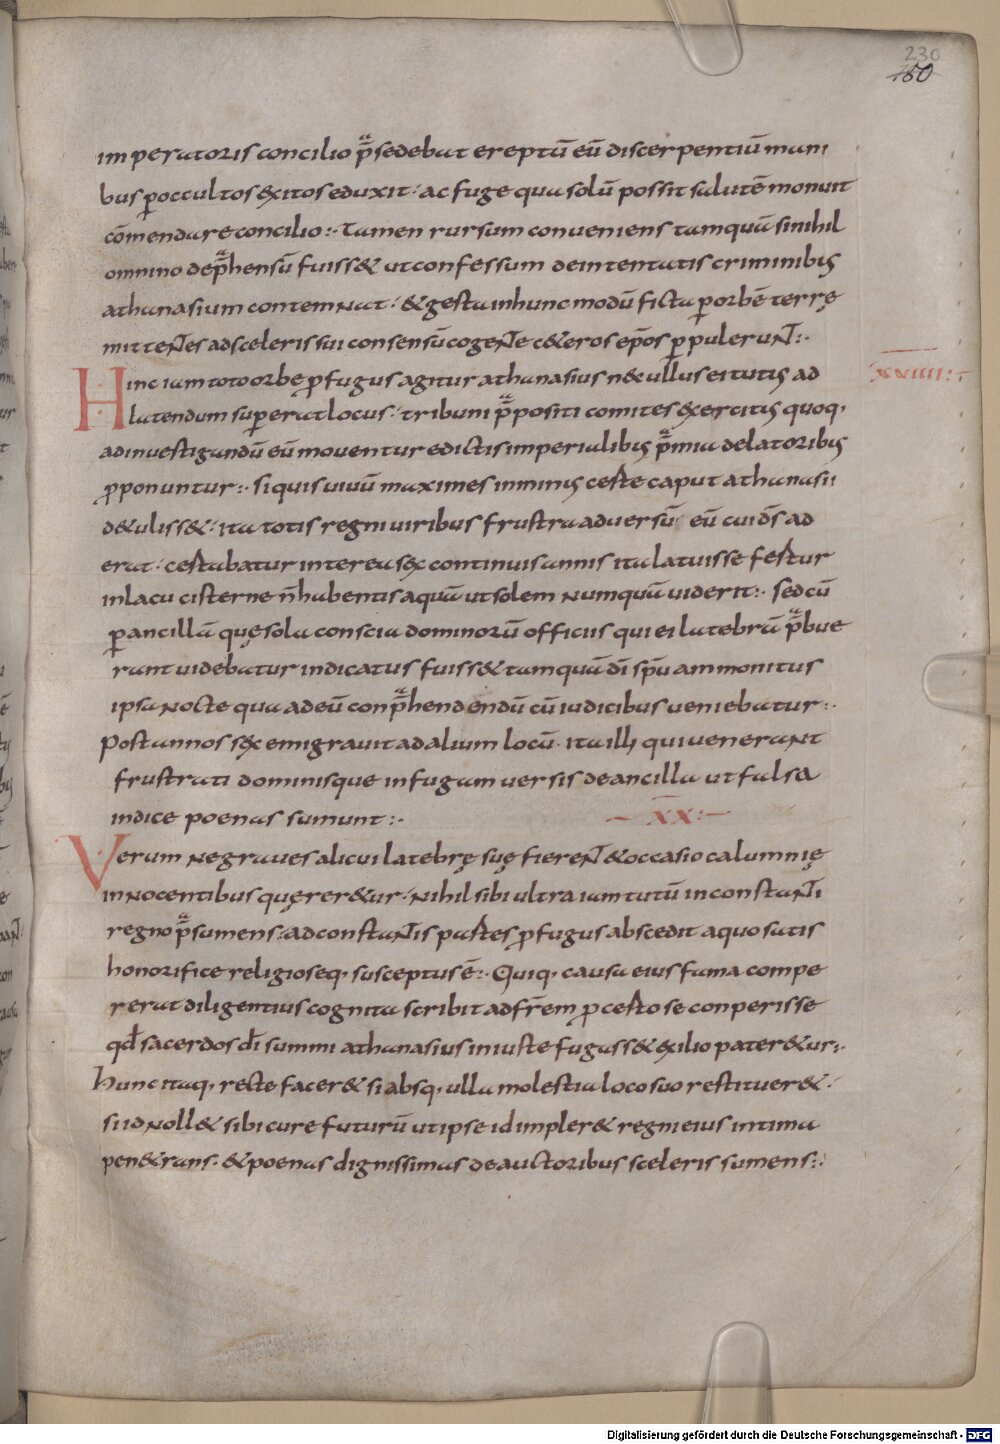 230
160
imperatoris concilio p̄sedebat ereptū eū discerpentiū mani
bus p̱ occultos exitos eduxit· ac fuge qua solū possit salutē monuit
cōmendare concilio:· Tamen rursum conveniens tamquā si nihil
omnino dep̄hensū fuiss& ut confessum de intentatis criminibꝫ
athanasium contemnat· & gesta in hunc modū ficta p̱ orbē terrę
mittentes ad sceleris sui consensū cogente c&eros ep̄os p̱pulerunt:·
XVIIII:·
Hinc iam toto orbe ꝓfugus agitur athanasius n& ullus ei tutꝰ ad
latendum superat locus· tribuni p̄positi comites exercitꝰ quoq,
ad investigandū eū moventur edictis imperialibꝫ p̄mia delatoribꝫ
ꝓponuntur:· si quis vivū maxime si minꝰ certe caput athanasii
d&uliss&· ita totis regni viribus frustra adversū eū cui dꝭ ad
erat· certabatur interea sex continuis annis ita latuisse fertur
in lacu cisterne n̄ habentis aquā ut solem numquā viderit:· sed cū
p̱ ancillā quę sola conscia dominorū officiis qui ei latebrā p̄bue
rant videbatur indicatus fuiss& tamquā dī sp̄u ammonitus
ipsa nocte qua ad eū conp̄hendendū cū iudicibus veniebatur:·
Post annos sex emigravit ad alium locū· ita illi qui venerant
frustrati dominisque in fugam versis de ancilla ut falsa
indice poenas sumunt:·
XX:·
Verum ne graves alicui latebrę suę fierent & occasio calumnię
innocentibus quęrer&ur· nihil sibi ultra iam tutū in constanti
regno p̄sumens· ad constantis partes ꝓfugus abscedit a quo satis
honorifice religioseq, susceptus ē:· Quiq, causa eius fama compe
rerat diligentius cognita scribit ad fr̄em ꝓ certo se conperisse
qđ sacerdos dī summi athanasius iniuste fugas & exilio pater&ur:·
hunc itaq, recte facer& si absq, ulla molestia loco suo restituer&·
si id noll& sibi cure futurū ut ipse id impler& regni eius intima
pen&rans· & poenas dignissimas de auctoribus sceleris sumens:·
Digitalisierung gefördert durch die Deutsche Forschungsgemeinschaft - DFG